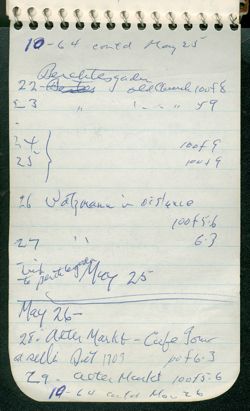 10-64 contd May 25
Berchtesgaden
22 - old Church 100 f 8
23 " " " " 59
24
100 f 9
25
100 f 9
26 Watzmann in distance
100 f 5.6
27 " 6.3
May 25
May 26-
28. Alter Markt - Cafe
100 f 6.3
29. Alter Markt 100 f 5.6
10-64 contd May 26